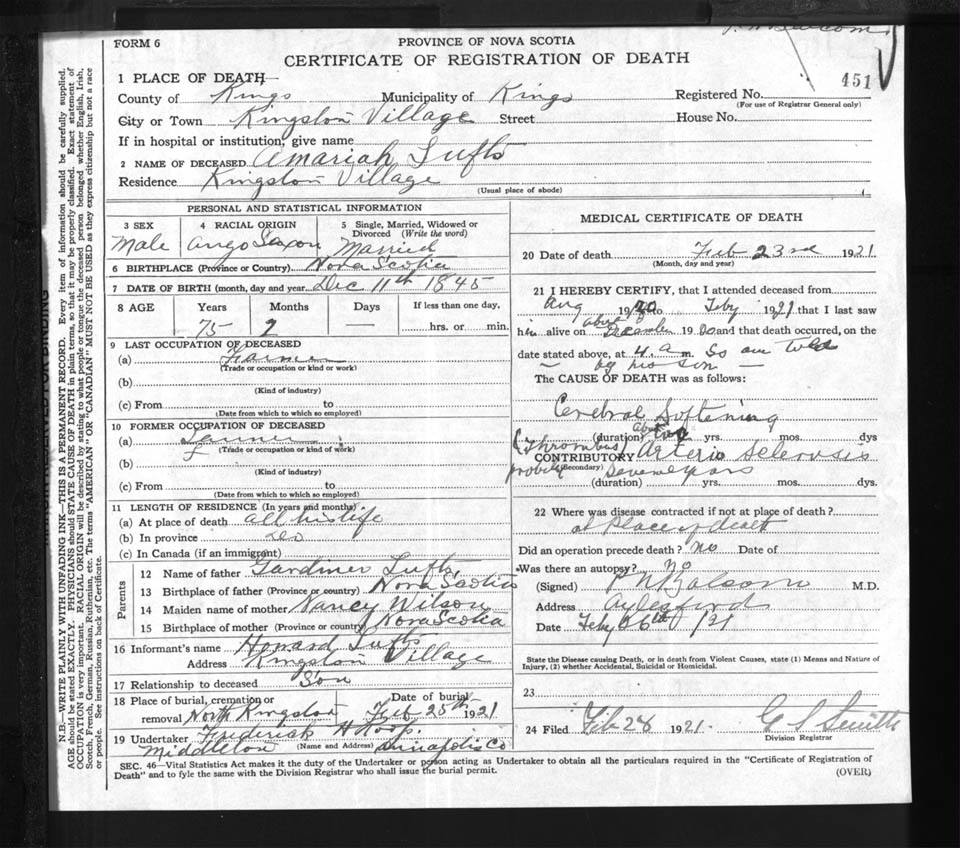 FORM 6
PROVINCE OF NOVA SCOTIA
CERTIFICATE OF REGISTRATION OF DEATH
451
1 PLACE OF DEATH—
County of Kings Municipality of Kings Registered No.
(For use of Registrar General only)
City or Town Kingston Village Street House No.
If in hospital or institution, give name
2 NAME OF DECEASED Amariah Tufts
Residence Kingston Village
(Usual place of abode)
PERSONAL AND STATISTICAL INFORMATION
3 SEX 4 RACIAL ORIGIN 5 Single, Married, Widowed or
Divorced (Write the word)
Male Ango Saxon Married
6 BIRTHPLACE (Province or Country) Nova Scotia
7 DATE OF BIRTH (month, day and year Dec 11th 1845
8 AGE Years Months Days If less than one day,
75 2 — hrs. or min.
9 LAST OCCUPATION OF DECEASED
(a) Farmer
(Trade or occupation or kind or work)
(b)
(Kind of industry)
(c) From to
(Date from which to which so employed)
10 FORMER OCCUPATION OF DECEASED
(a) Farmer
(Trade or occupation or kind of work)
(b)
(Kind of industry)
(c) From to
(Date from which to which so employed)
11 LENGTH OF RESIDENCE (In years and months)
(a) At place of death all his life
(b) In province Do
(c) In Canada (if an immigrant)
Parents
12 Name of father Gardiner Tufts
13 Birthplace of father (Province or country) Nova Scotia
14 Maiden name of mother Nancy Wilson
15 Birthplace of mother (Province or country) Nova Scotia
16 Informant's name Howard Tufts
Address Kingston Village
17 Relationship to deceased Son
18 Place of burial, cremation or Date of burial
removal North Kingston Feb 25th 1921
19 Undertaker Frederick H Hoop.
Middleton (Name and Address) Annapolis Co
MEDICAL CERTIFICATE OF DEATH
20 Date of death Feb 23rd 1921
(Month, day and year)
21 I HEREBY CERTIFY, that I attended deceased from
Aug 1920 to Feby 1921 that I last saw
him alive on about December 1920 and that death occurred, on the
date stated above, at 4. a. m. So am told
— by his son —
The CAUSE OF DEATH was as follows:
Cerebral Softening
(duration) about two yrs. mos. dys
(Thrombus) CONTRIBUTORY Arterio Sclerosis
probably (Secondary) Seven years
(duration) yrs. mos. dys.
22 Where was disease contracted if not at place of death?
at Place of death
Did an operation precede death? no Date of
Was there an autopsy? no
(Signed) P N Balcom M.D.
Address Aylesford
Date Feby 26th /21
State the Disease causing Death, or in death from Violent Causes, state (1) Means and Nature of
Injury, (2) whether Accidental, Suicidal or Homicidal.
23
24 Filed Feb 28 1921. G S Smith
Division Registrar
SEC. 46—Vital Statistics Act makes it the duty of the Undertaker or person acting as Undertaker to obtain all the particulars required in the "Certificate of Registration of
Death" and to fyle the same with the Division Registrar who shall issue the burial permit.
(OVER)
N.B.—WRITE PLAINLY WITH UNFADING INK—THIS IS A PERMANENT RECORD. Every item of information should be carefully supplied.
AGE should be stated EXACTLY. PHYSICIANS should STATE CAUSE OF DEATH in plain terms, so that it may be properly classified. Exact statement of
OCCUPATION is very important. RACIAL ORIGIN will be described by stating to what people or tongue the deceased person belonged whether English, Irish,
Scotch, French, German, Russian, Ruthenian, etc. The terms "AMERICAN" OR "CANADIAN" MUST NOT BE USED as they express citizenship but not a race
or people. See instructions on back of Certificate.